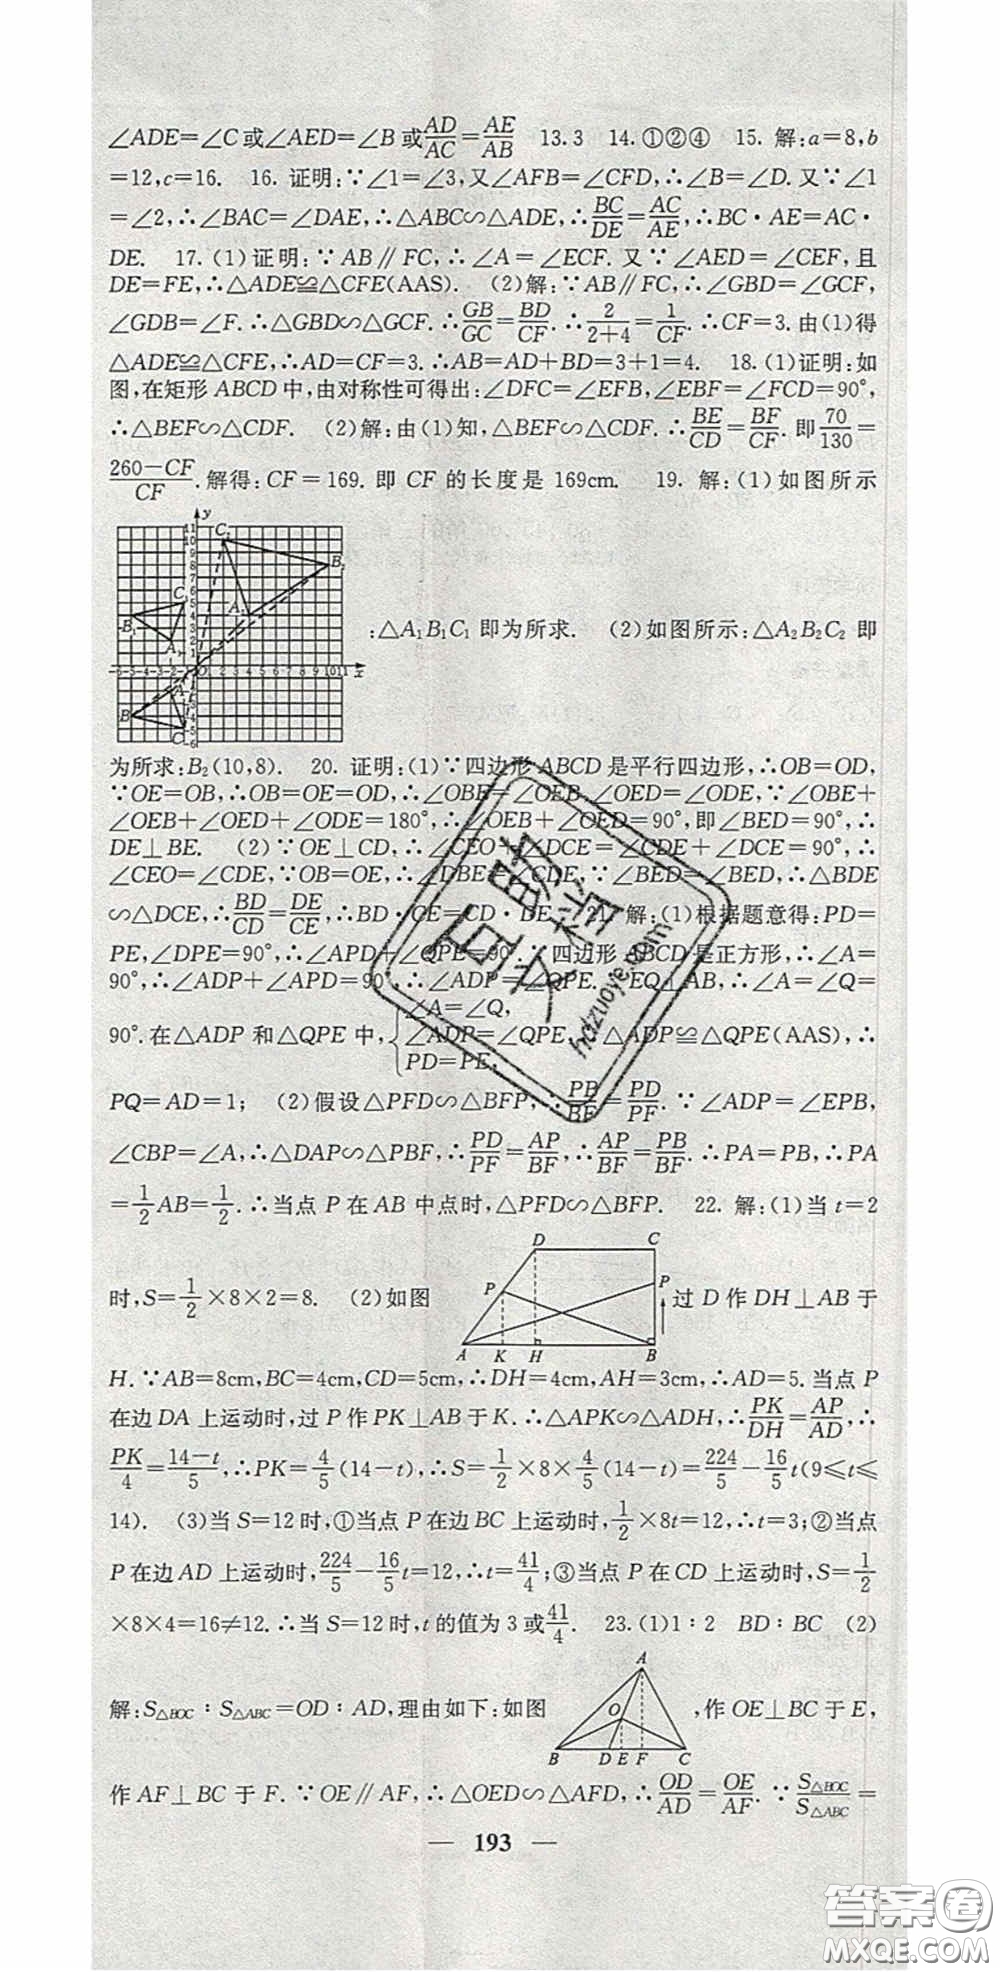 ∠ADE=∠C或∠AED=∠B或AD/AC=AE/AB 13.3 14.①②④ 15. 解:a=8,b
=12,c=16. 16. 证明:∵∠1=∠3,又∠AFB=∠CFD,∴∠B=∠D.又∵∠1
=∠2,∴∠BAC=∠DAE,∴△ABC∽△ADE,∴BC/DE=AC/AE,∴BC·AE=AC·
DE. 17.(1)证明:∵AB∥FC,∴∠A=∠ECF.又∵∠AED=∠CEF,且
DE=FE,∴△ADE≌△CFE(AAS). (2)解:∵AB∥FC,∴∠GBD=∠GCF,
∠GDB=∠F.∴△GBD∽△GCF.∴GB/GC=BD/CF.∴2/(2+4)=1/CF.∴CF=3.由(1)得
△ADE≌△CFE,∴AD=CF=3.∴AB=AD+BD=3+1=4. 18.(1)证明:如
图,在矩形ABCD中,由对称性可得出:∠DFC=∠EFB,∠EBF=∠FCD=90°,
∴△BEF∽△CDF. (2)解:由(1)知,△BEF∽△CDF.∴BE/CD=BF/CF.即70/130=
(260-CF)/CF.解得:CF=169.即CF的长度是169cm. 19. 解:(1)如图所示
:△A₁B₁C₁即为所求. (2)如图所示:△A₂B₂C₂即
为所求:B₂(10,8). 20. 证明:(1)∵四边形ABCD是平行四边形,∴OB=OD,
∵OE=OB,∴OB=OE=OD,∴∠OBE=∠OEB,∠OED=∠ODE,∵∠OBE+
∠OEB+∠OED+∠ODE=180°,∴∠OEB+∠OED=90°,即∠BED=90°,∴
DE⊥BE. (2)∵OE⊥CD,∴∠CEO+∠DCE=∠CDE+∠DCE=90°,∴
∠CEO=∠CDE,∵OB=OE,∴∠DBE=∠CDE,∵∠BED=∠BED,∴△BDE
∽△DCE,∴BD/CD=DE/CE,∴BD·CE=CD·DE. 21. 解:(1)根据题意得:PD=
PE,∠DPE=90°,∴∠APD+∠QPE=90°.∵四边形ABCD是正方形,∴∠A=
90°,∴∠ADP+∠APD=90°,∴∠ADP=∠QPE.∵EQ⊥AB,∴∠A=∠Q=
90°.在△ADP和△QPE中,{∠A=∠Q,
∠ADP=∠QPE,∴△ADP≌△QPE(AAS),∴
PD=PE,
PQ=AD=1; (2)假设△PFD∽△BFP,∴PB/BF=PD/PF.∵∠ADP=∠EPB,
∠CBP=∠A,∴△DAP∽△PBF,∴PD/PF=AP/BF,∴AP/BF=PB/BF.∴PA=PB,∴PA
=1/2AB=1/2.∴当点P在AB中点时,△PFD∽△BFP. 22. 解:(1)当t=2
时,S=1/2×8×2=8. (2)如图
D C P P A K H B
过D作DH⊥AB于
H.∵AB=8cm,BC=4cm,CD=5cm,∴DH=4cm,AH=3cm,∴AD=5.当点P
在边DA上运动时,过P作PK⊥AB于K.∴△APK∽△ADH,∴PK/DH=AP/AD,∴
PK/4=(14-t)/5,∴PK=4/5(14-t),∴S=1/2×8×4/5(14-t)=224/5-16/5t(9≤t≤
14). (3)当S=12时,①当点P在边BC上运动时,1/2×8t=12,∴t=3;②当点
P在边AD上运动时,224/5-16/5t=12,∴t=41/4;③当点P在CD上运动时,S=1/2
×8×4=16≠12.∴当S=12时,t的值为3或41/4. 23.(1)1∶2 BD∶BC (2)
解:S△BOC∶S△ABC=OD∶AD,理由如下:如图
A O B D E F C
,作OE⊥BC于E,
作AF⊥BC于F.∵OE∥AF,∴△OED∽△AFD,∴OD/AD=OE/AF.∵S△BOC/S△ABC=
— 193 —
hdzuoye.com
答案圈
MXQE.COM